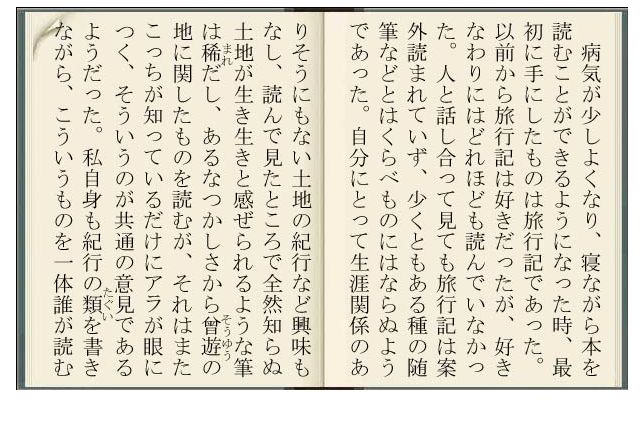 病気が少しよくなり、寝ながら本を
読むことができるようになった時、最
初に手にしたものは旅行記であった。
以前から旅行記は好きだったが、好き
なわりにはどれほども読んでいなかっ
た。人と話し合って見ても旅行記は案
外読まれていず、少くともある種の随
筆などとはくらべものにはならぬよう
であった。自分にとって生涯関係のあ
りそうにもない土地の紀行など興味も
なし、読んで見たところで全然知らぬ
土地が生き生きと感ぜられるような筆
は稀まれだし、あるなつかしさから曾遊そうゆうの
地に関したものを読むが、それはまた
こっちが知っているだけにアラが眼に
つく、そういうのが共通の意見である
ようだった。私自身も紀行の類たぐいを書き
ながら、こういうものを一体誰が読む